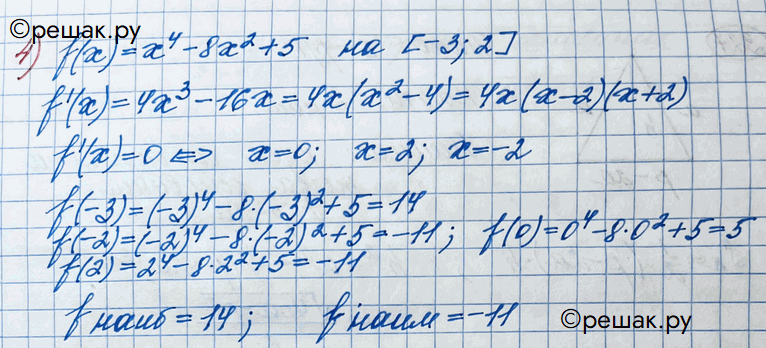 ©решак.ру
4) f(x)=x⁴-8x²+5 на [-3; 2]
f'(x)=4x³-16x=4x(x²-4)=4x(x-2)(x+2)
f'(x)=0 <=> x=0; x=2; x=-2
f(-3)=(-3)⁴-8·(-3)²+5=14
f(-2)=(-2)⁴-8·(-2)²+5=-11; f(0)=0⁴-8·0²+5=5
f(2)=2⁴-8·2²+5=-11
f наиб=14; f наим=-11
©решак.ру